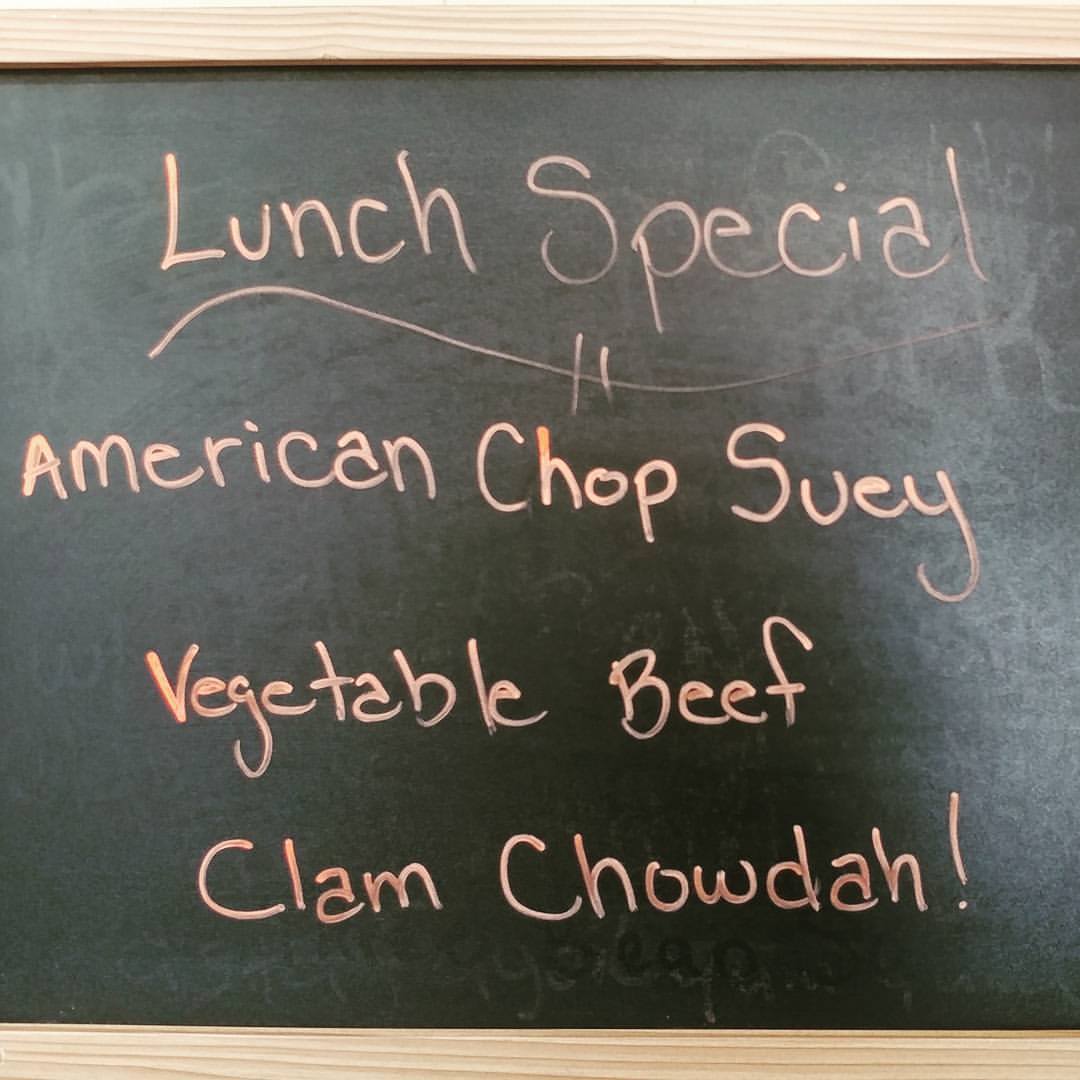 Lunch Special
American Chop Suey
Vegetable Beef
Clam Chowdah!